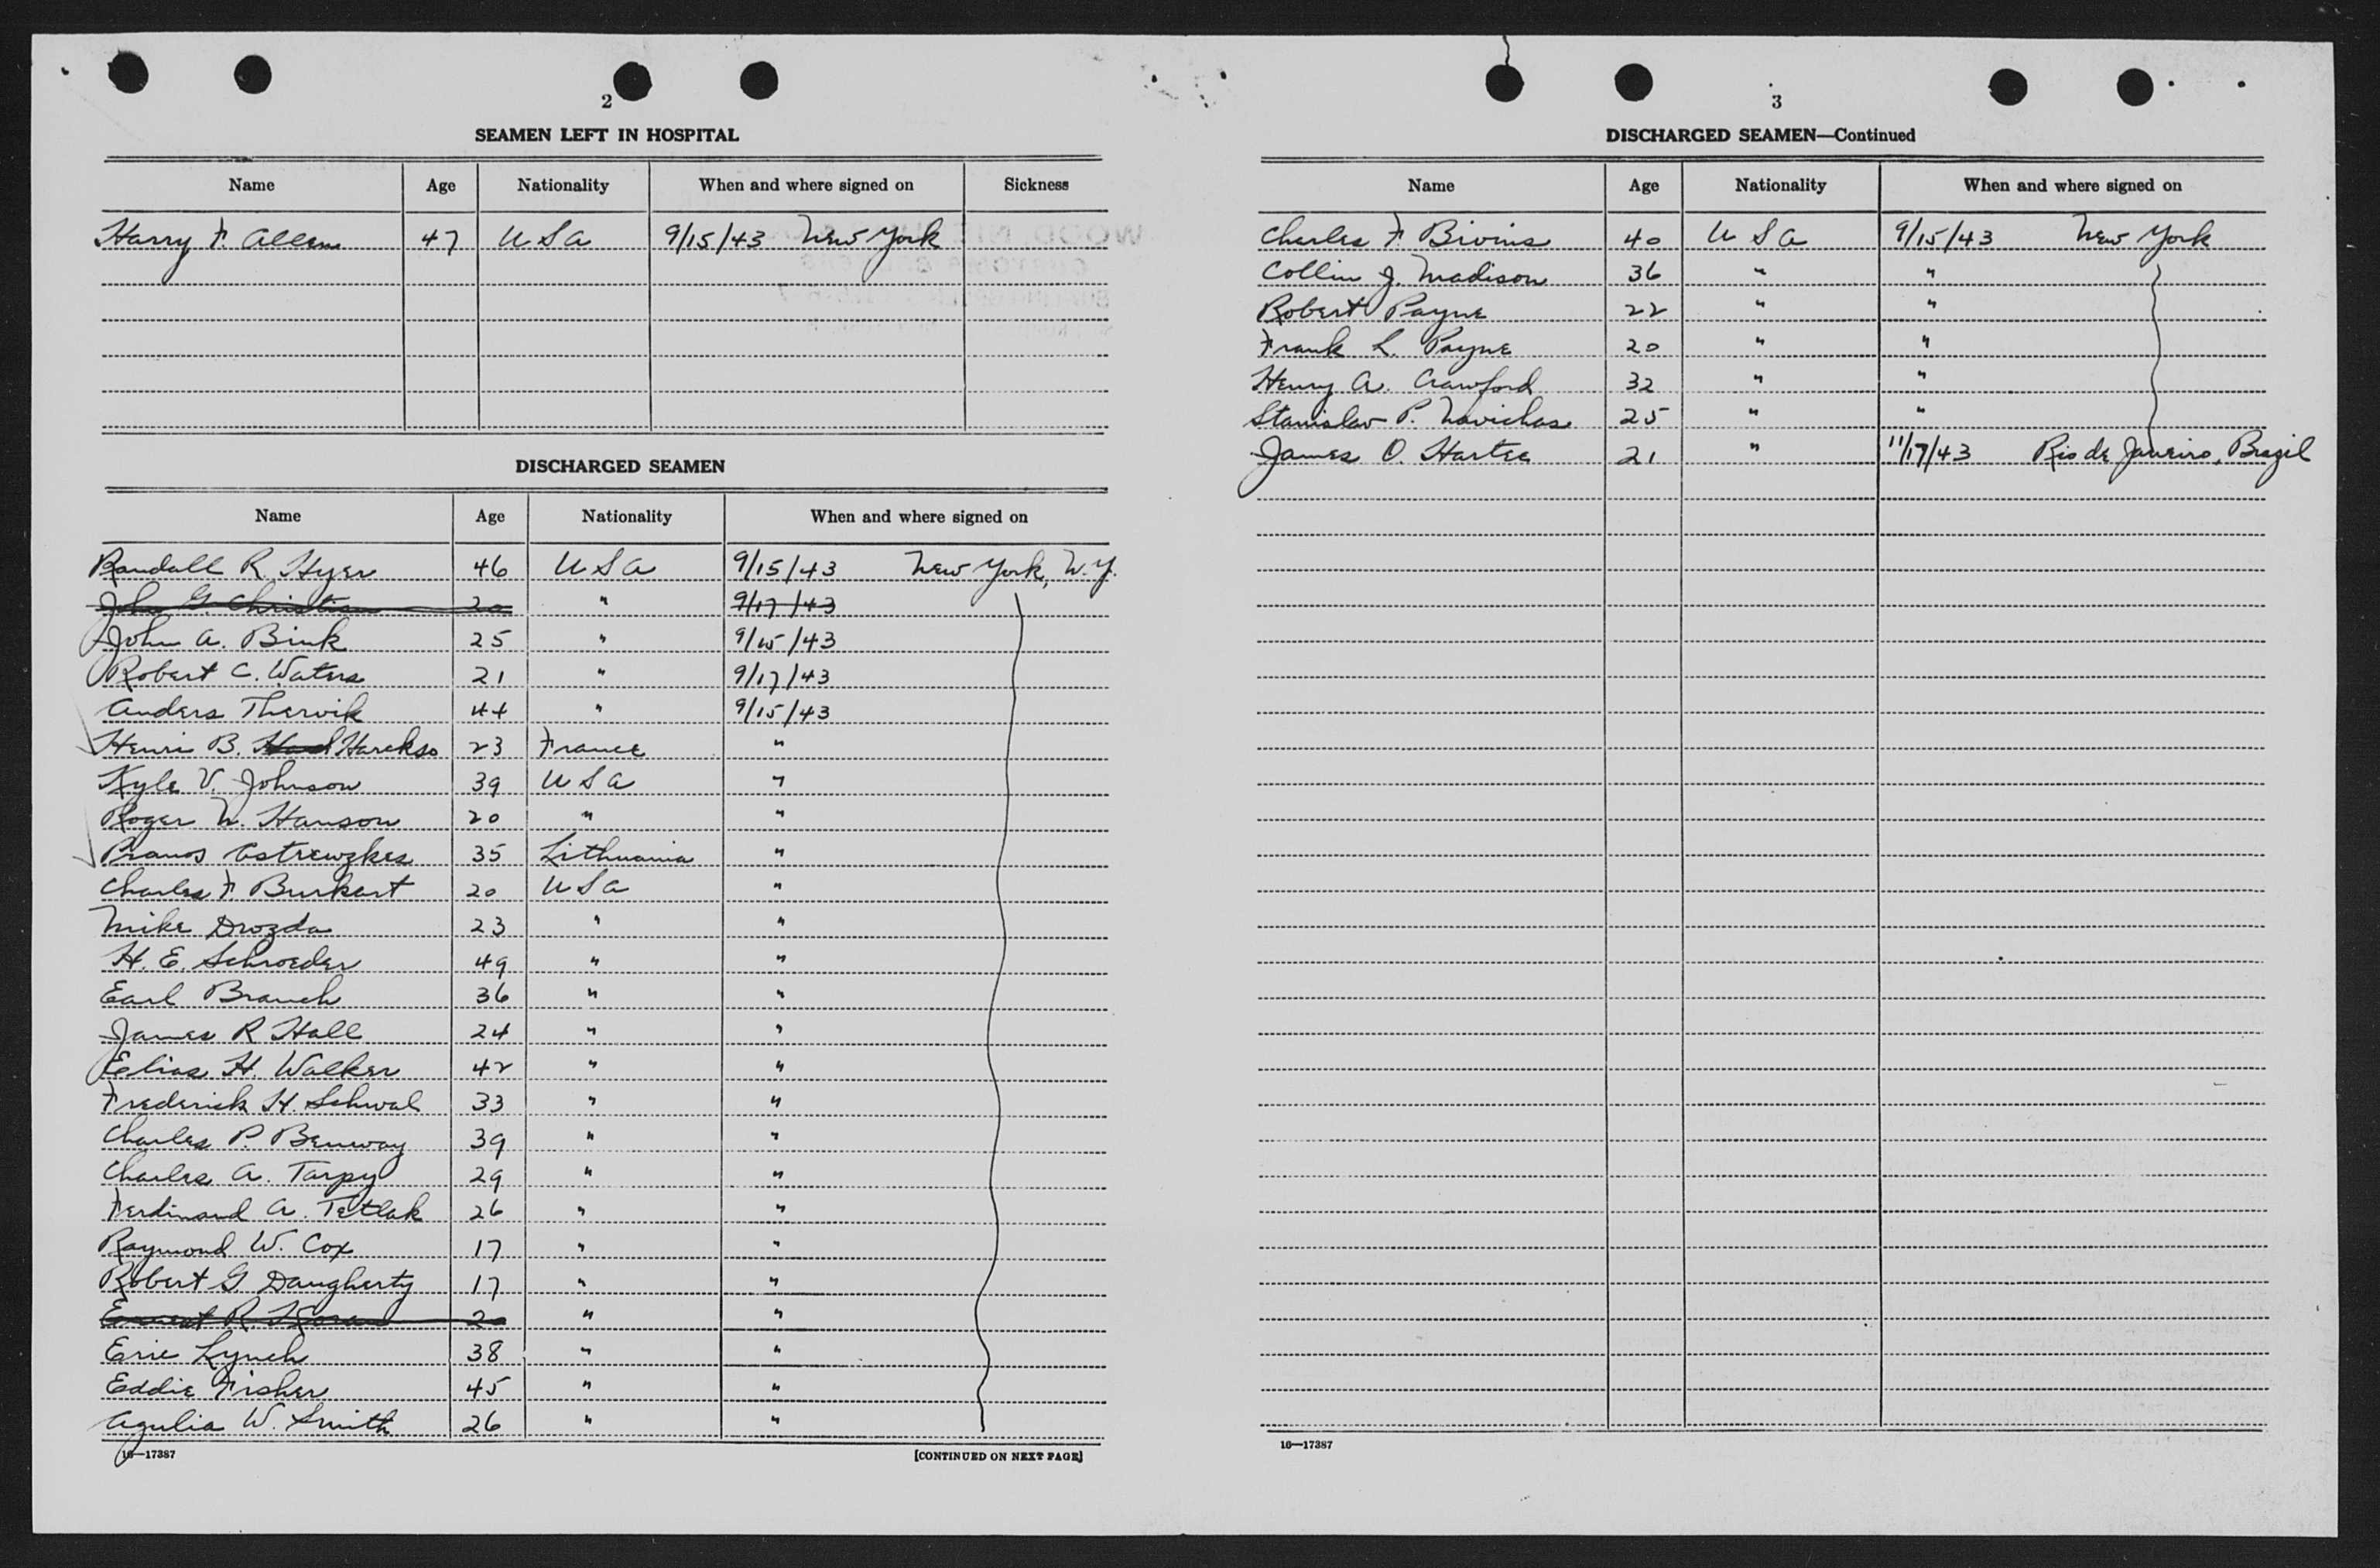 2
SEAMEN LEFT IN HOSPITAL
Name Age Nationality When and where signed on Sickness
Harry F. Allen 47 USA 9/15/43 New York
DISCHARGED SEAMEN
Name Age Nationality When and where signed on
Randall R. Hyer 46 USA 9/15/43 New York, N.Y.
John G. Christian 20 " 9/17/43
John A. Bink 25 " 9/15/43
Robert C. Waters 21 " 9/17/43
Anders Thervik 44 " 9/15/43
Henri B. Harekso 23 France "
Kyle V. Johnson 39 USA "
Roger N. Hanson 20 " "
Pranos 35 Lithuania "
Charles F. Burkart 20 USA "
Mike Drozda 23 " "
H. E. Schroeder 49 " "
Earl Branch 36 " "
James R Hall 24 " "
Elias H. Walker 42 " "
Frederick H. Schwal 33 " "
Charles P. Benway 39 " "
Charles A. Tarpy 29 " "
Ferdinand A. Tetlak 26 " "
Raymond W. Cox 17 " "
Robert G Daugherty 17 " "
Ernest R. 20 " "
Eric Lynch 38 " "
Eddie Fisher 45 " "
Agulia W. Smith 26 " "
16—17387
[CONTINUED ON NEXT PAGE]
3
DISCHARGED SEAMEN—Continued
Name Age Nationality When and where signed on
Charles F. Bivins 40 USA 9/15/43 New York
Collin J. Madison 36 " "
Robert Payne 22 " "
Frank L. Payne 20 " "
Henry A. Crawford 32 " "
Stanislav P. Navichas 25 " "
James O. Hartee 21 " 11/17/43 Rio de Janeiro, Brazil
16—17387